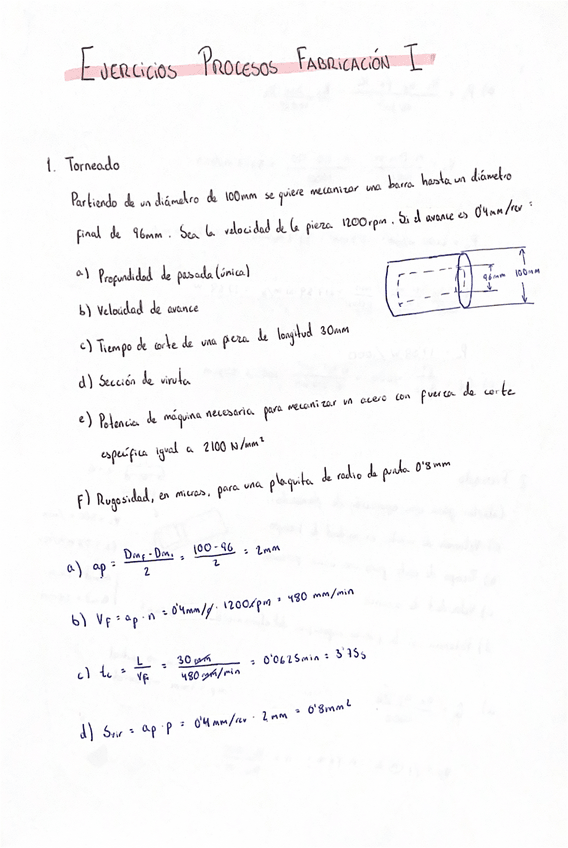 EJERCICIOS PROCESOS FABRICACIÓN I
1. Torneado
Partiendo de un diámetro de 100mm se quiere mecanizar una barra hasta un diámetro
final de 96mm. Sea la velocidad de la pieza 1200rpm. Si el avance es 0'4mm/rev:
a) Profundidad de pasada (única)
b) Velocidad de avance
c) Tiempo de corte de una pieza de longitud 30mm
d) Sección de viruta
e) Potencia de máquina necesaria para mecanizar un acero con fuerza de corte
específica igual a 2100 N/mm²
F) Rugosidad, en micras, para una plaquita de radio de punta 0'8mm
96mm 100mm
a) ap = (Dinf - Dini) / 2 = (100 - 96) / 2 = 2mm
b) VF = ap · n = 0'4mm/r · 1200rpm = 480 mm/min
c) tc = L / VF = 30 mm / 480 mm/min = 0'0625min = 3'75s
d) Svir = ap · p = 0'4mm/rev · 2mm = 0'8mm²